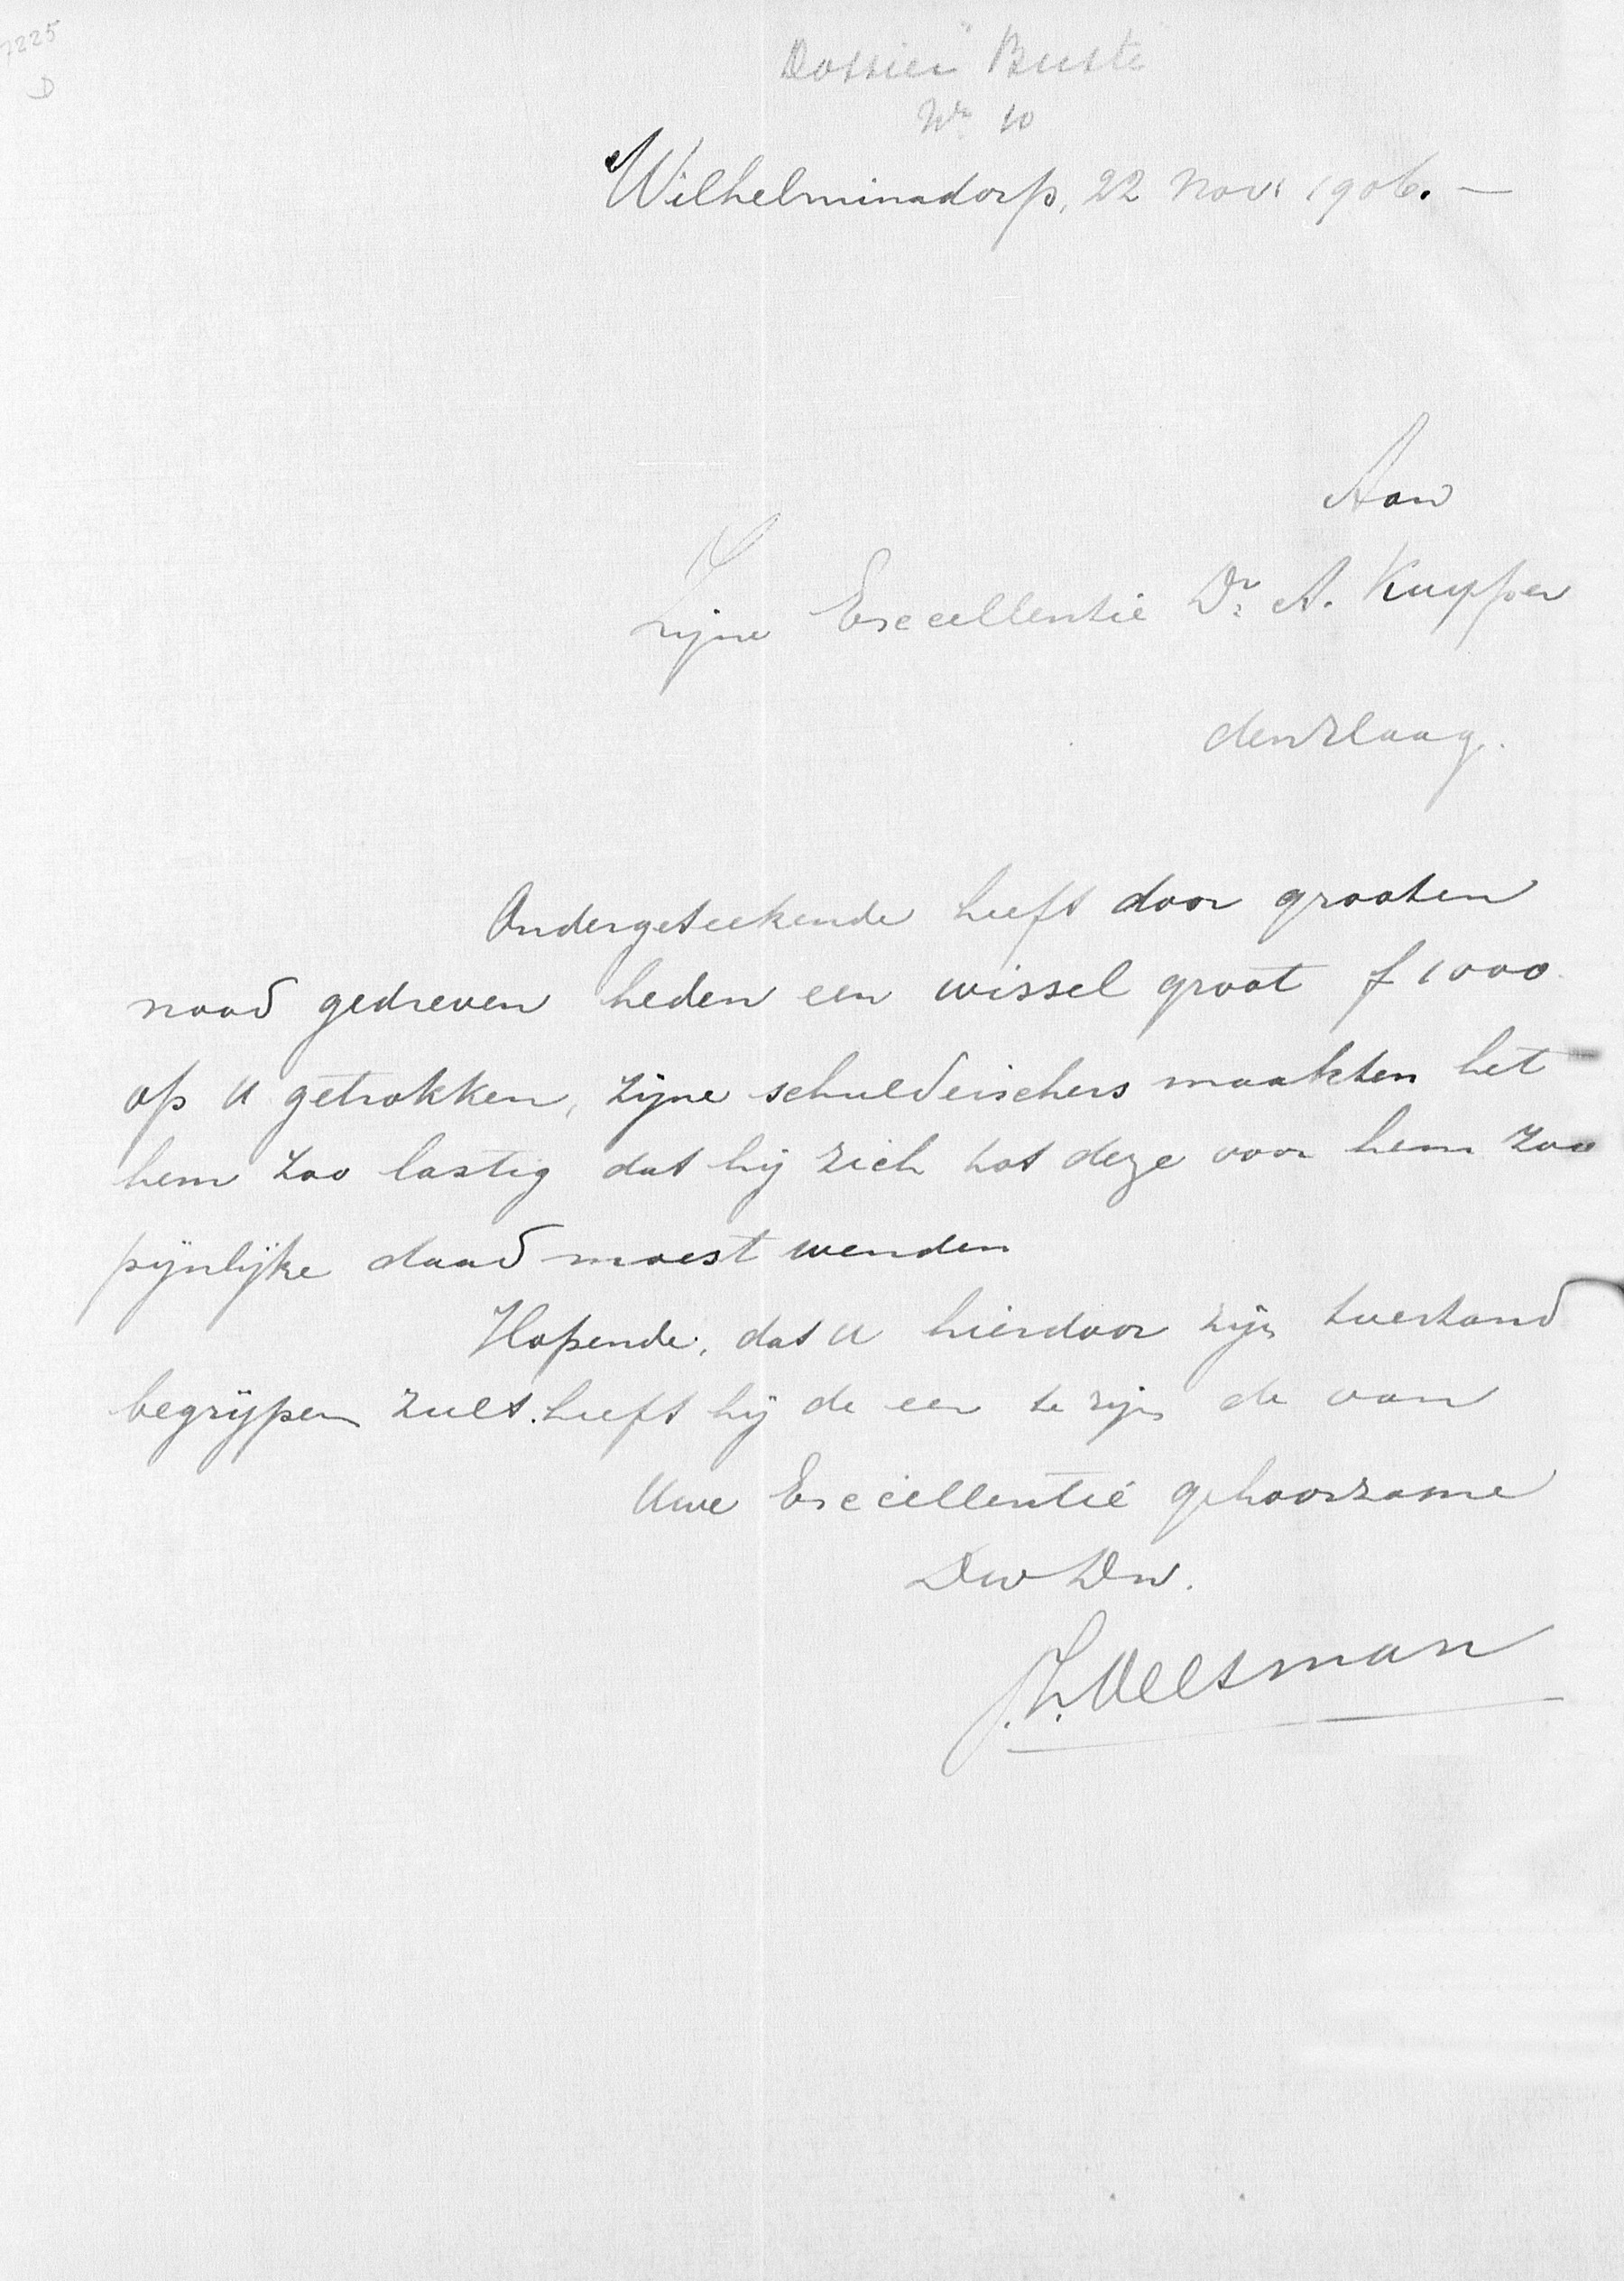 7225
D
Dossier "Buste"
No 10
Wilhelminadorp, 22 Nov. 1906. —
Aan
Zijne Excellentie Dr. A. Kuyper
den Haag.
Ondergeteekende heeft door grooten
nood gedreven heden een wissel groot f 1000
op U getrokken, zijne schuldeischers maakten het
hem zoo lastig dat hij zich tot deze voor hem zoo
pijnlijke daad moest wenden
Hopende, dat U hierdoor zijn toestand
begrijpen zult. heeft hij de eer te zijn de van
Uwe Excellentie gehoorzame
Dw Dn.
J. Z. Veltman